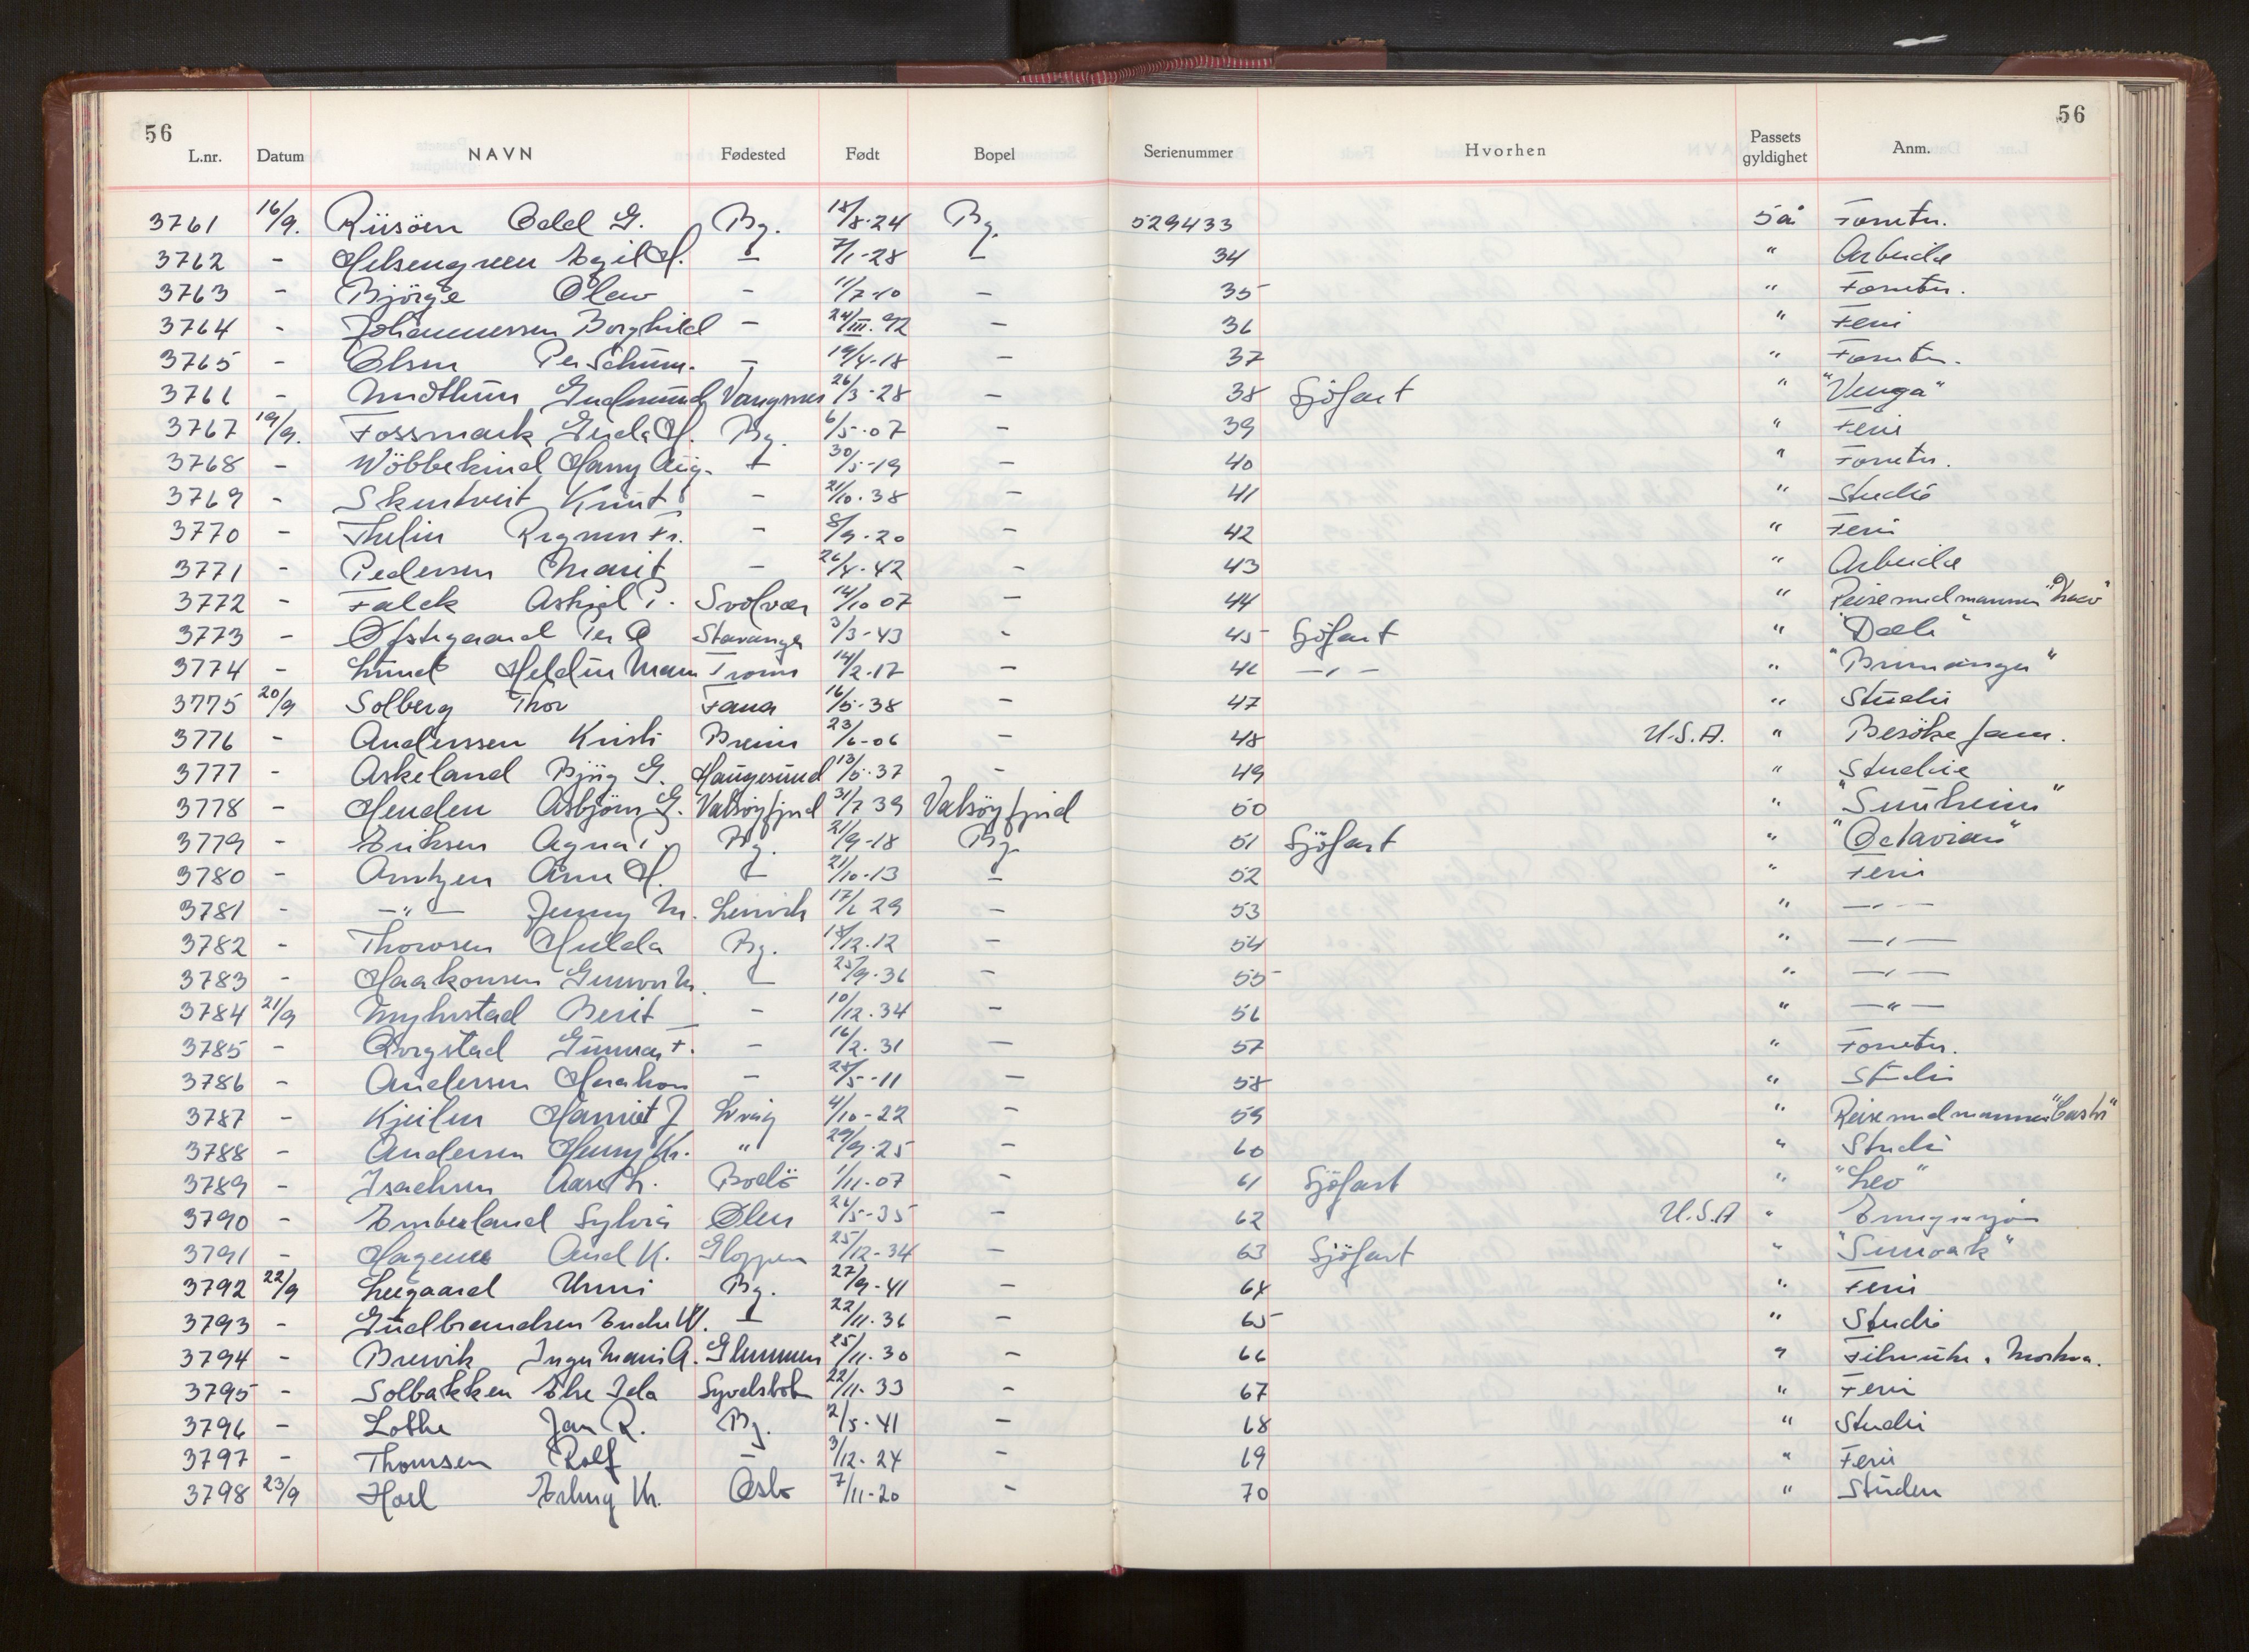 56
56
L.nr. Datum NAVN Fødested Født Bopel Serienummer Hvorhen Passets gyldighet Anm.
3761 16/9. Riisöen Odd G. Bg. 18/8-24 Bg. 529433 5 å Forretn.
3762 - Helsengreen Egil H. - 7/1-28 - 34 " Arbeide
3763 - Bjørge Olav - 11/7-10 - 35 " Forretn.
3764 - Johannessen Borghild - 24/III.92 - 36 " Ferie
3765 - Olsen Per Schum. - 19/4-18 - 37 " Forretn.
3766 - Gudmund Vangsnes 26/3-28 - 38 Sjöfart " "Venga"
3767 19/9. Fossmark Gerda H. Bg. 6/5-07 - 39 " Ferie
3768 - Wöbbekind Harry Aug. - 30/5-19 - 40 " Forretn.
3769 - Skurtveit Knut - 21/10.38 - 41 " Studie
3770 - Thelin Ragnar Fr. - 8/9-20 - 42 " Ferie
3771 - Pedersen Marit - 26/4-42 - 43 " Arbeide
3772 - Falck Astrid P. Svolvær 14/10 07 - 44 " Reise med mannen
3773 - Øfstegaard Per Stavanger 3/3-43 - 45 Sjöfart "
3774 - Lund Troms 14/2-17 - 46 -"- " "Brimanger"
3775 20/9 Solberg Thor Fana 16/5-38 - 47 " Studie
3776 - Anderssen Kristi Breim 23/6-06 - 48 U.S.A. " Besöke fam.
3777 - Askeland Bjørg G. Haugesund 13/5-37 - 49 " Studie
3778 - Henden Asbjørn G. Valsöyfjord 31/7 39 Valsöyfjord 50 " "Sunheim"
3779 - Eriksen Agnar Bg. 21/9-18 Bg. 51 Sjöfart " "Octavian"
3780 - Arntzen Arne H. - 21/10-13 - 52 " Ferie
3781 - -"- Jenny M. Leirvik 17/6 29 - 53 " -"-
3782 - Thorsen Hulda Bg. 18/12-12 - 54 " -"-
3783 - Haakonsen Gunvor M. - 25/9-36 - 55 " -"-
3784 21/9 Myhrstad Berit - 10/12.34 - 56 " -"-
3785 - Borgstad Gunnar F. - 16/2.31 - 57 " Forretn.
3786 - Andersen Haakon - 25/5-11 - 58 " Studie
3787 - Kjeilen Harriet J. 4/10-22 - 59 " Reise med mannen
3788 - Andersen Henry Kr. " 29/9-25 - 60 " Studie
3789 - Isachsen Bodö 1/11-07 - 61 Sjöfart " "Leo"
3790 - Emberland Sylvia Ølen 24/5-35 - 62 U.S.A " Emigrasjon
3791 - Hagene Arid K. Gloppen 25/12-34 - 63 Sjöfart " "Sunoak"
3792 22/9 Leegaard Unni Bg. 27/9-41 - 64 " Ferie
3793 - Gudbrandsen Endre W. - 22/11.36 - 65 " Studie
3794 - Brevik Inger Marie A. Glemmen 25/11.30 - 66 " Moskva.
3795 - Solbakken Else Ida 22/11-33 - 67 " Ferie
3796 - Lothe Jan R. Bg. 2/5-41 - 68 " Studie
3797 - Thomsen Rolf - 3/12-24 - 69 " Ferie
3798 23/9 Erling Kr. Oslo 7/11-20 - 70 "